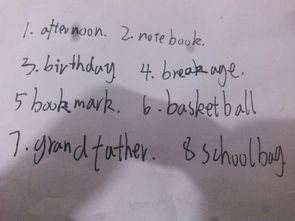 1. afternoon. 2. notebook.
3. birthday 4. breakage.
5 bookmark. 6. basketball
7. grandfather. 8 schoolbag